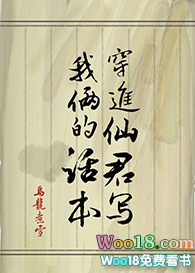 穿進仙君写
我俩的话本
乌龍煮雪
Woo18.com
Woo18免费看书